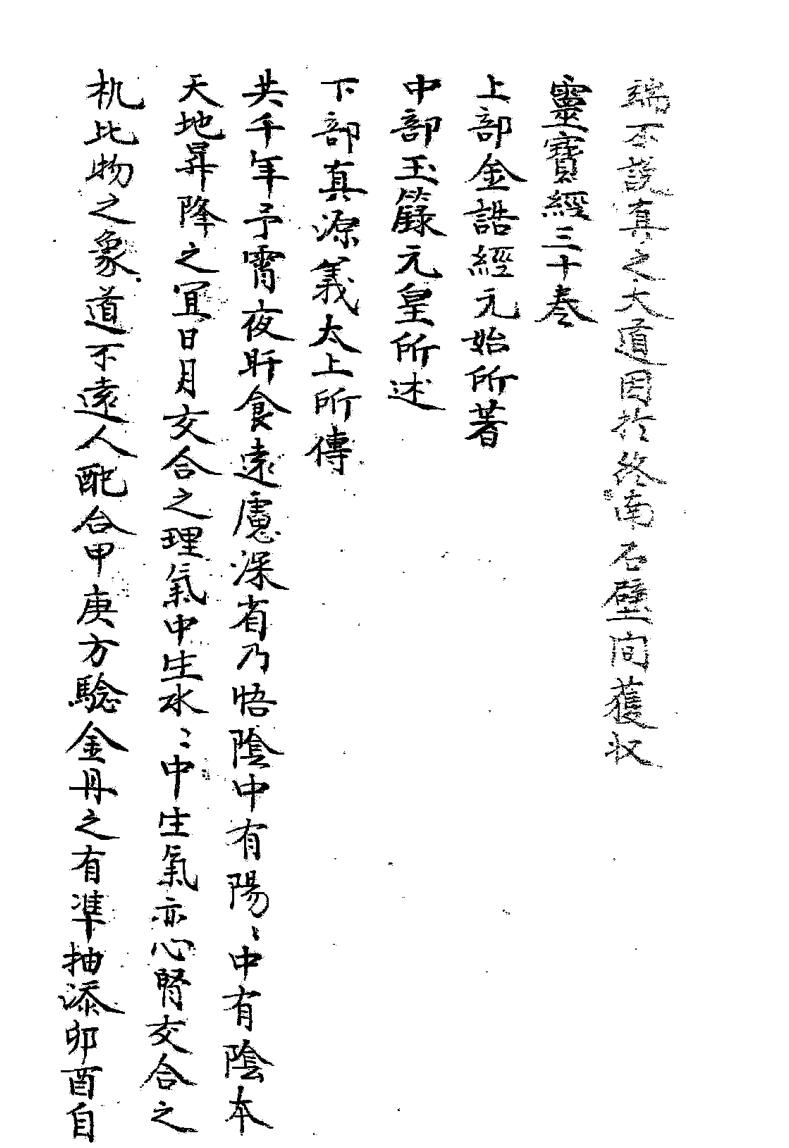 端不說真之大道因於終南石壁间獲収
靈寳經三十巻
上部金誥經元始所著
中部玉籙元皇所述
下部真源義太上所傳
共千年予宵夜旰食遠慮深省乃悟陰中有陽〻中有陰本
天地昇降之冝日月交合之理氣中生水〻中生氣亦心腎交合之
机比物之象道不遠人配合甲庚方驗金丹之有凖抽添卯酉自